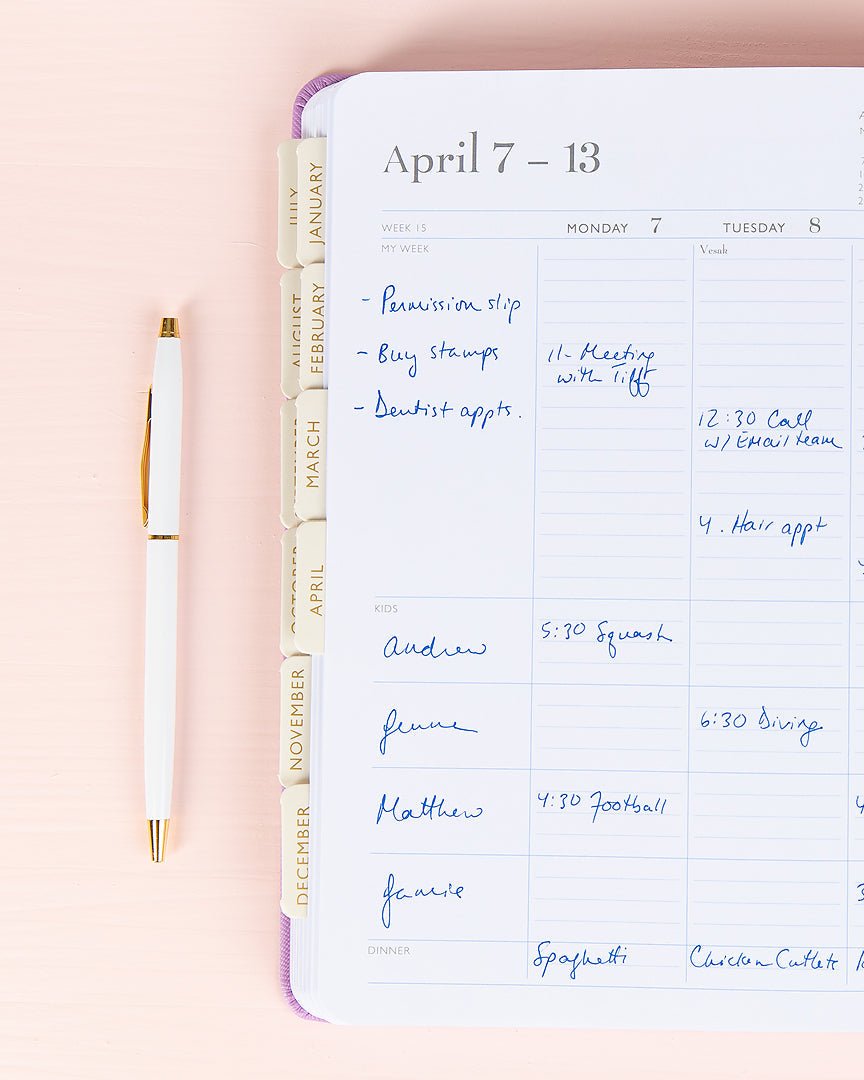 JULY
JANUARY
AUGUST
FEBRUARY
MARCH
OCTOBER
APRIL
NOVEMBER
DECEMBER
April 7 – 13
WEEK 15
MONDAY 7
TUESDAY 8
MY WEEK
Vesak
- Permission slip
- Buy stamps
- Dentist appts.
11- Meeting
with Tiff
12:30 Call
w/ EMail team
4. Hair appt
KIDS
Andrew
5:30 Squash
6:30 Diving
Matthew
4:30 Football
Jamie
DINNER
Spaghetti
Chicken Cutlets